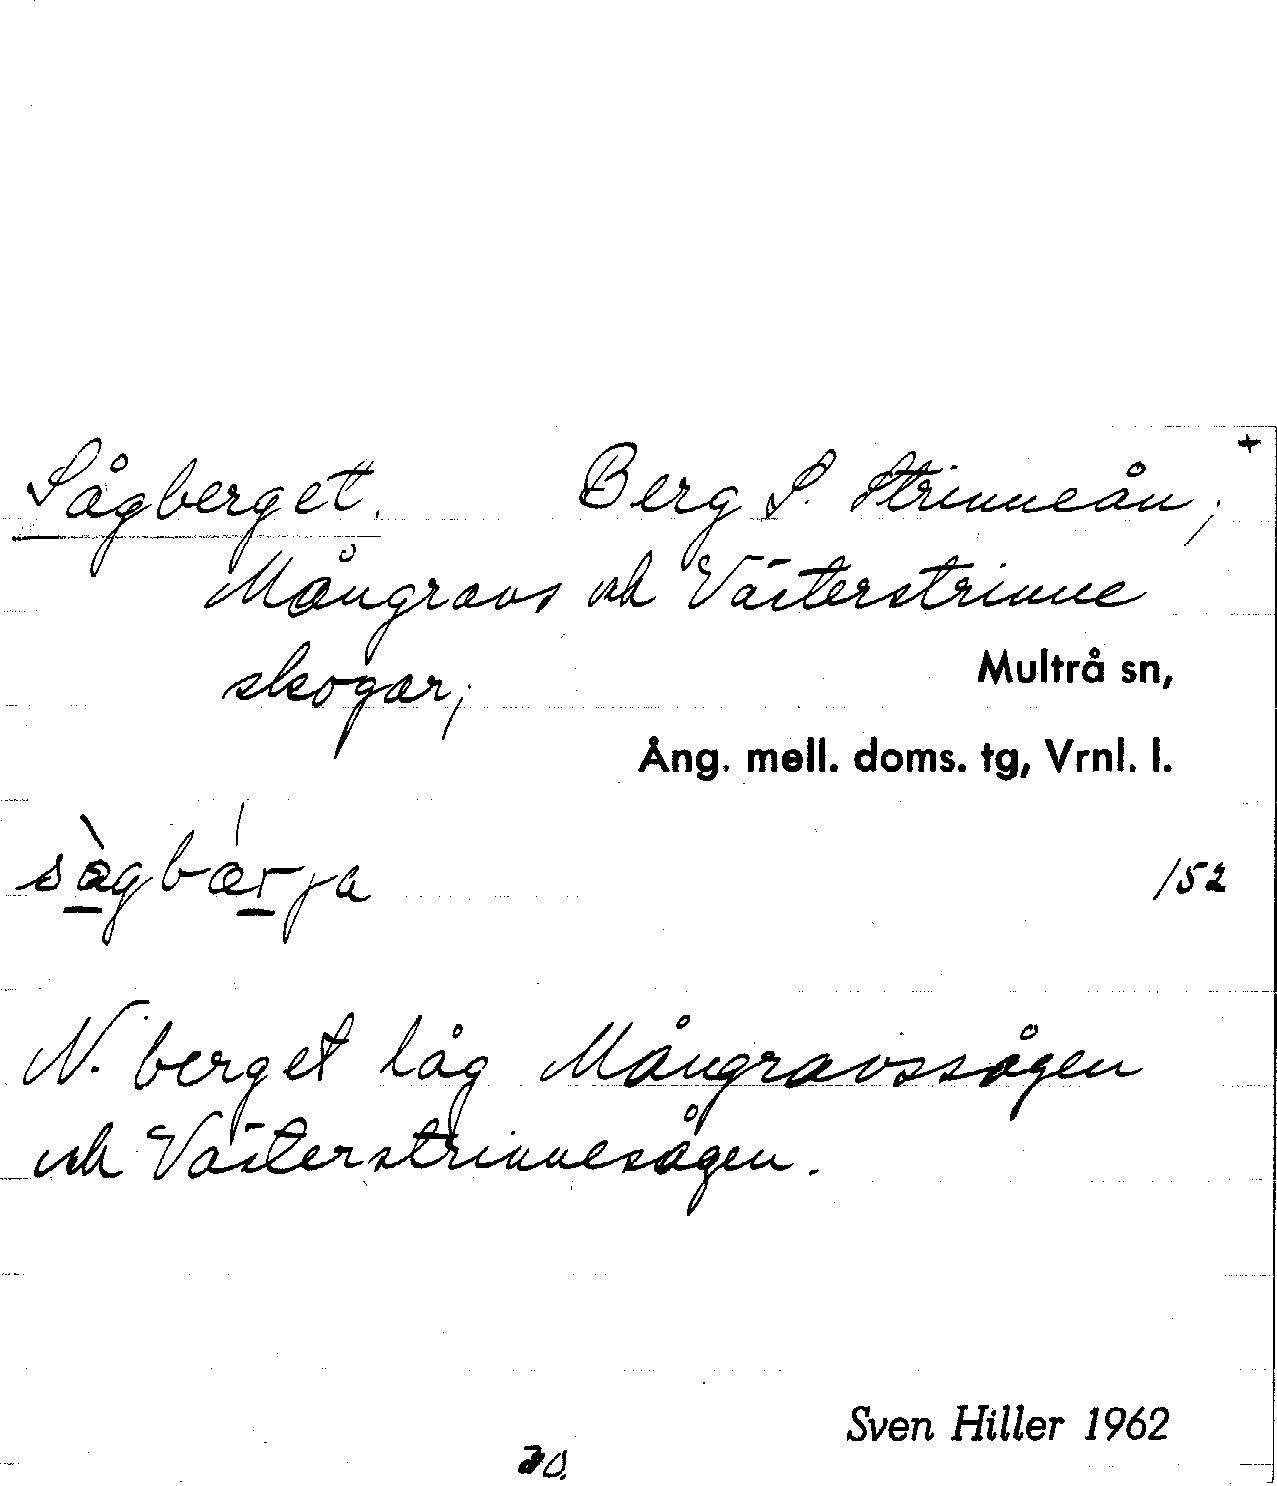 +
Sågberget. Berg S. Strinneån;
Mångravs och Västerstrinne
skogar;
Multrå sn,
Ång. mell. doms. tg, Vrnl. l.
sàgbárja
152
N. berget låg Mångravssågen
och Västerstrinnesågen.
Sven Hiller 1962